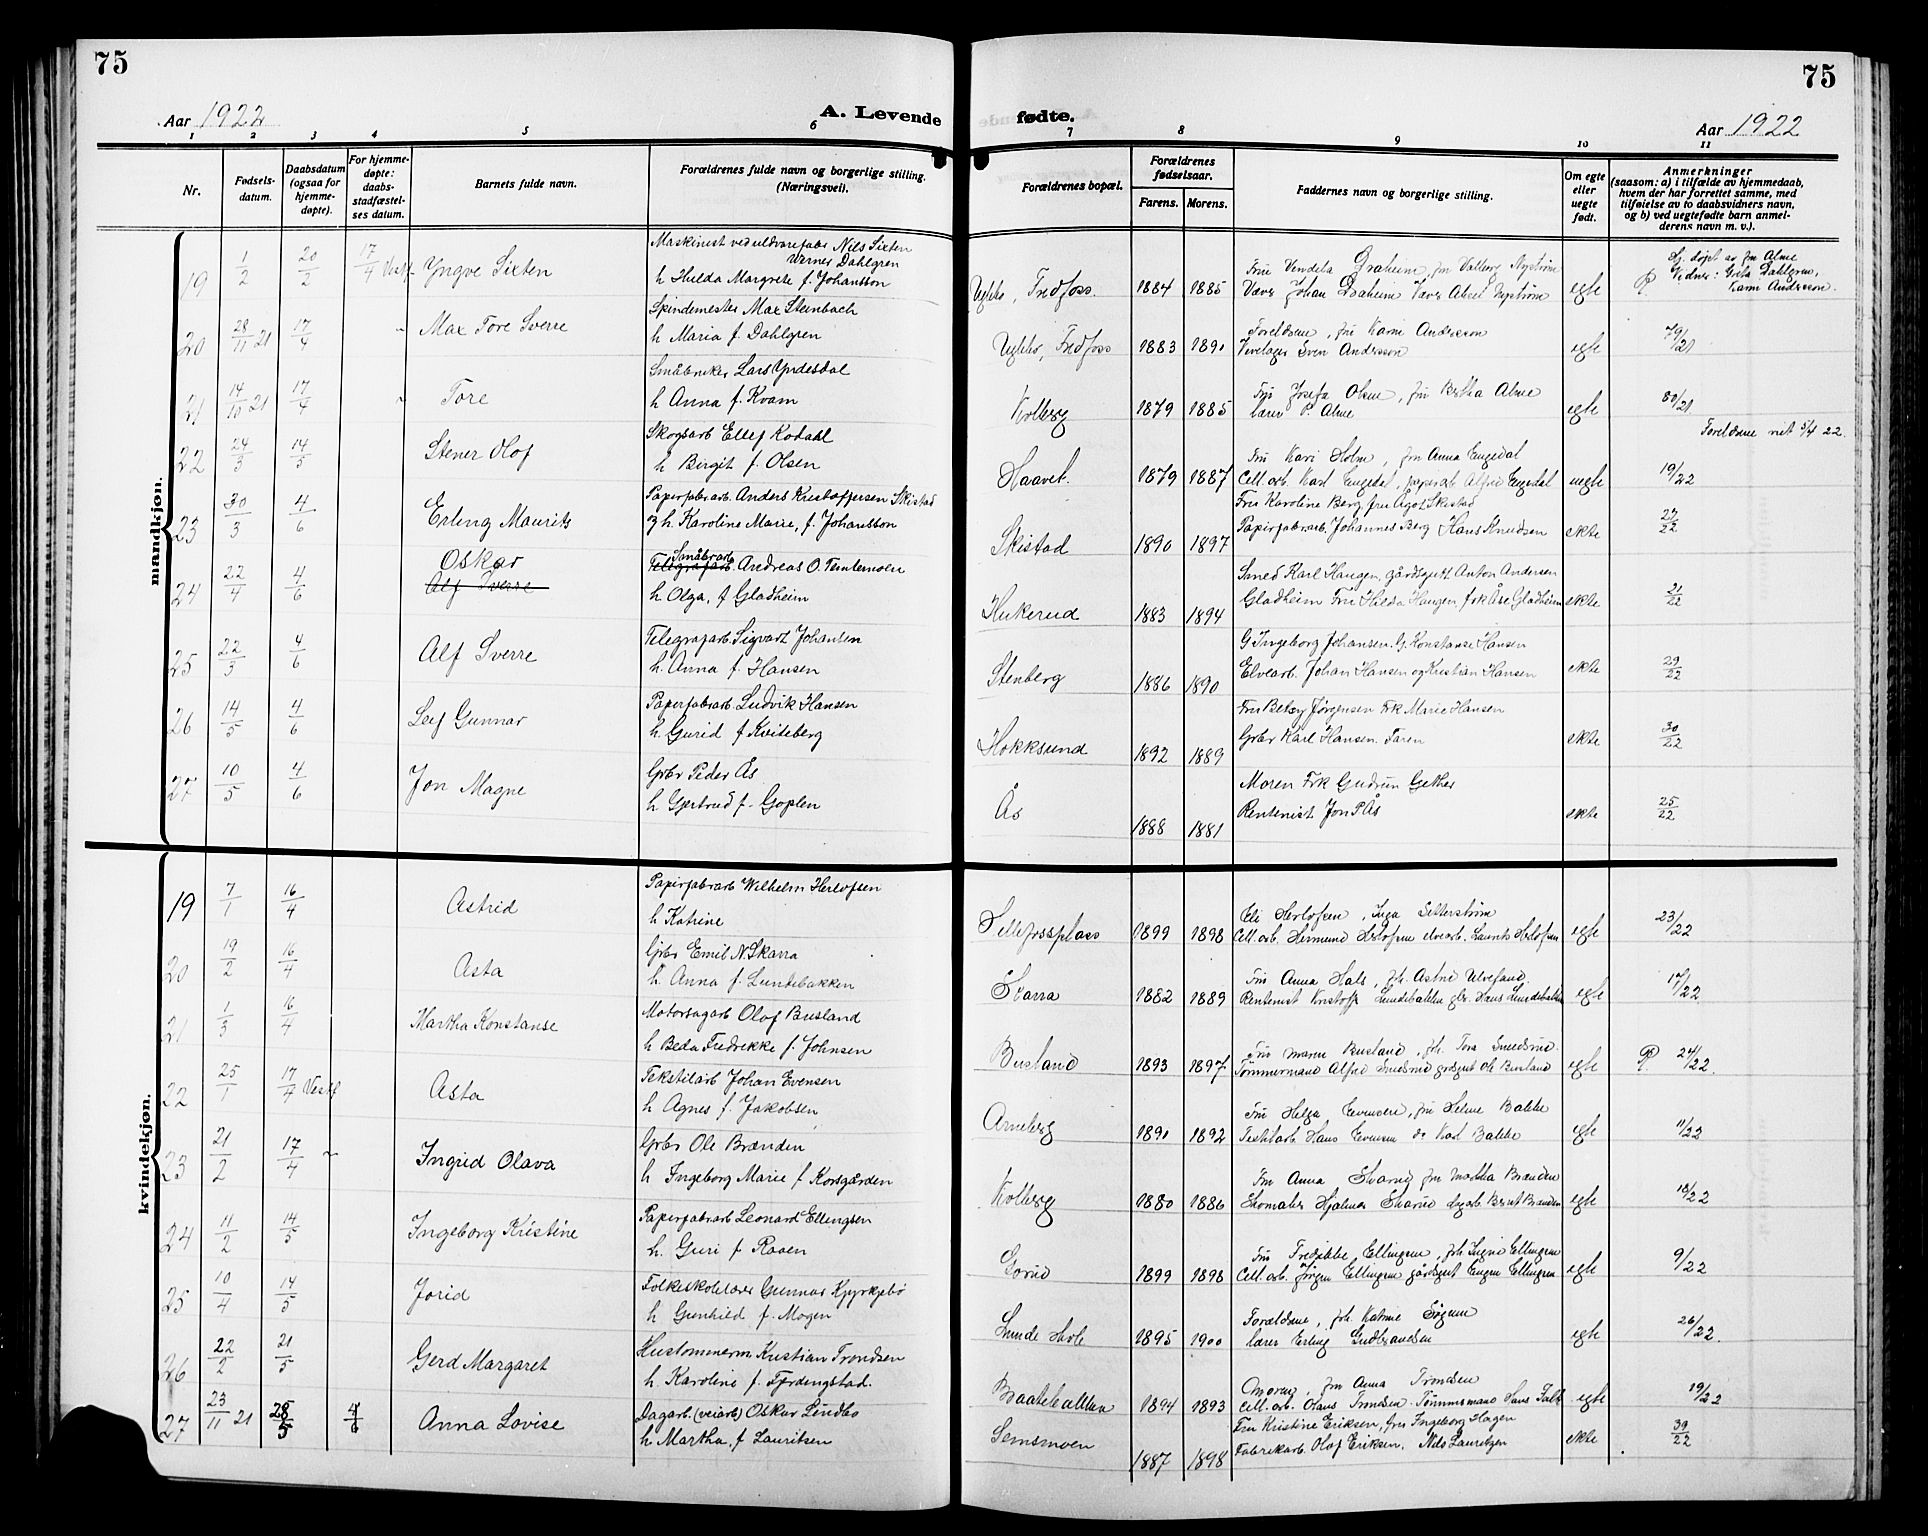 75
Aar 1922
A. Levende
1 2 3 4 5 6
Nr.
Fødsels-
datum.
Daabsdatum
(ogsaa for
hjemme-
døpte).
For hjemme-
døpte:
daabs-
stadfæstel-
ses datum.
Barnets fulde navn.
Forældrenes fulde navn og borgerlige stilling.
(Næringsvei).
mandkjøn.
19 1/2 20/2 17/4 Vestf Yngve Sixten
Maskinist ved uldvarefabr Nils Sixten
Verner Dahlgren
h Hulda Margrete f. Johansson
20 28/11 21 17/4 " Max Tore Sverre
Spindemester Max Steinbach
h Maria f. Dahlgren
21 14/10 21 17/4 " Tore
Småbruker Lars Yndesdal
h Anna f. Kvam
22 24/3 14/5 Stener Olof
Skogsarb Ellef Kodahl
h Birgit f. Olsen
23 30/3 4/6 Erling Maurits
Papirfabrarb. Anders Kristoffersen Skistad
og h. Karoline Marie, f. Johansson
24 22/4 4/6 Oskar
Alf Sverre
Småbrarb
Telegrafarb. Andreas O. Temternoen
h. Olga, f Gladheim
25 22/3 4/6 Alf Sverre
Telegrafarb. Sigvart Johansen
h. Anna f. Hansen
26 14/5 4/6 Leif Gunnar
Papirfabrarb. Ludvik Hansen
h. Gurid f Kviteberg
27 10/5 4/6 Jon Magne
Grbr Peder Ås
h Gjertrud f. Goplen
kvindekjøn.
19 7/1 16/4 Astrid
Papirfabrarb Wilhelm Herlofsen
h Katrine
20 19/2 16/4 Asta
Grbr Emil N. Skarra
h. Anna f. Lundebakken
21 1/3 16/4 Martha Konstanse
Motorsagarb Olof Busland
h Beda Fredrikke f. Johnsen
22 25/1 17/4 Vestf Asta
Tekstilarb Johan Evensen
h Agnes f. Jakobsen
23 21/2 17/4 " Ingrid Olava
Grbr Ole Brænden
h Ingeborg Marie f Korsgården
24 11/2 14/5 Ingeborg Kristine
Papirfabrarb Leonard Ellingsen
h. Guri f Raaen
25 10/4 14/5 Jorid
Folkeskolelærer Gunnar Kyrkjebø
h Gunhild f. Mogen
26 22/2 21/5 Gerd Margaret
Hustømmerm Kristian Trondsen
h. Karoline f. Fjerdingstad.
27 23/11 21 28/5 4/6 Anna Lovise
Dagarb. (veiarb) Oskar Lindbo
h. Martha, f Lauritsen
75
Aar 1922
fødte.
7 8 9 10 11
Forældrenes bopæl.
Forældrenes
fødselsaar.
Farens. Morens.
Faddernes navn og borgerlige stilling.
Om egte
eller
uegte
født.
Anmerkninger
(saasom: a) i tilfælde av hjemmedaab,
hvem der har forrettet samme, med
tilføielse av to daabsvidners navn,
og b) ved uegtefødte barn anmel-
derens navn m. v.).
Fredfoss. 1884 1885
Fru Vendela Draheim, fru Valborg Nystrøm
Væver Johan Draheim Væver Aksel Nystrøm egte
Hj. døpt av fru Alme
Vidner: Greta Dahlgren,
Karin Andersson.
Fredfoss 1883 1890
Forældrene, fru Karin Andersson
Sven Andersson egte 79/21
Kolberg 1879 1885
Fru Josefa Olsen, fru Bertha Alme
lærer P. Alme egte 80/21
Forældrene viet 5/4 22.
Haavet. 1879 1887
Fru Kari Holm, fru Anna Engedal
Cell. arb. Karl Engedal, papirarb Alfred Engedal uegte 19/22
Skistad 1890 1897
Fru Karoline Berg, fru Ågot Skistad
Papirfabrarb. Johannes Berg Hans Knudsen ekte 27/22
Hukerud 1883 1894
Smed Karl Haugen, gårdsgutt Anton Andersen
Gladheim Fru Hilda Haugen, frk Åse Gladheim ekte 21/22
Stenberg 1886 1890
G Ingeborg Johansen. G. Konstanse Hansen
Elvearb. Johan Hansen og Kristian Hansen ekte 29/22
Hokksund 1892 1889
Fru Betsy Jørgensen Frk Marie Hansen
Grbr Karl Hansen. Faren ekte 30/22
Ås 1888 1881
Moren Frk Gudrun Gether
Rentenist Jon P Ås ekte 25/22
1899 1898
Eli Herlofsen, Inga Setterstrøm
Cell. arb. Hermund Herlofsen elvearb. Laurits Herlofsen egte 23/22
Skarra 1882 1889
Fru Anna Hals, frk. Astrid Ulveland
Rentenist Kristoff Lundebakken gbr. Hans Lundebakken egte 17/22
Busland 1893 1897
Fru Maren Busland, frk. Tora Smedsrud
Tømmermand Alfred Smedsrud grdsgut Ole Busland egte 24/22.
Arneberg 1890 1892
Fru Helga Evensen, fru Helene Bakke
Textilarb Hans Evensen do Karl Bakke egte 11/22
Kolberg 1880 1886
Fru Anna Skarud fru Martha Brænden
Skomaker Hjalmar Skarud dagarb. Bernt Brænden egte 18/22
Gorud 1899 1898
Fru Fredrikke Ellingsen, frk Ingrid Ellingsen
Cell. arb. Jørgen Ellingsen gårdsgut Eugen Ellingsen egte 9/22
Lunde skole 1895 1900
Forældrene, frk. Katrine Søgnen
lærer Erling Gudbrandsen egte 26/22
Baatebakken 1894 1893
Moren, fru Anna Trondsen
Cell. arb. Olaus Trondsen. Tømmermand Hans Falk egte 19/22
Semsmoen 1887 1898
Fru Kristine Eriksen, fru Ingeborg Hagen
Fabrikarb. Olaf Eriksen, Nils Lauritzen ekte 39/22